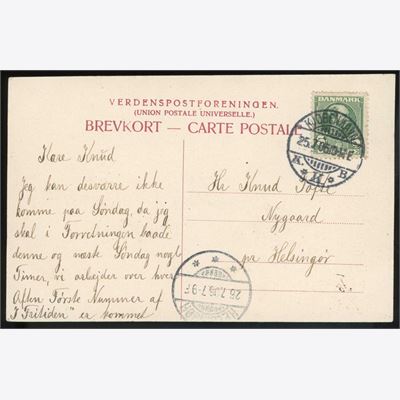 VERDENSPOSTFORENINGEN.
(UNION POSTALE UNIVERSELLE.)
BREVKORT — CARTE POSTALE
DANMARK
KJØBENHAVN
25.7.06
K. K B
Kære Knud
Jeg kan desværre ikke
komme paa Søndag, da jeg
skal i Forretningen baade
denne og næste Søndag nogle
Timer, vi arbejder over hver
Aften Første Nummer af
"I Fritiden" er kommet
Hr Knud Toft
Nygaard
pr Helsingør
26.7.06.7-9F